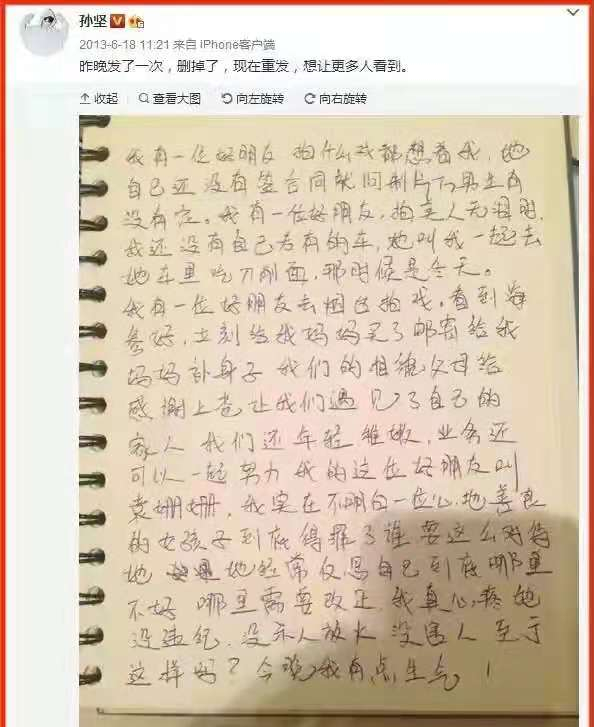 孙坚
2013-6-18 11:21 来自 iPhone客户端
昨晚发了一次，删掉了，现在重发，想让更多人看到。
收起 查看大图 向左旋转 向右旋转
我有一位好朋友 拍什么戏都想着我，她
自己还没有签合同就问制片方男生有
没有定。我有一位好朋友，拍美人无泪时，
我还没有自己专有的车，她叫我一起去
她车里吃刀削面，那时候是冬天。
我有一位好朋友去烟台拍戏，看到海
参好，立刻给我妈妈买了邮寄给我
妈妈补身子 我们的相貌父母给
感谢上苍让我们遇见了自己的
家人 我们还年轻稚嫩，业务还
可以一起努力 我的这位好朋友叫
袁姗姗，我实在不明白一位心地善良
的女孩子到底得罪了谁 要这么对待
她 她经常反思自己到底哪里
不好 哪里需要改正，我真心疼她
没违纪，没杀人放火 没害人 至于
这样吗？今晚我有点生气！